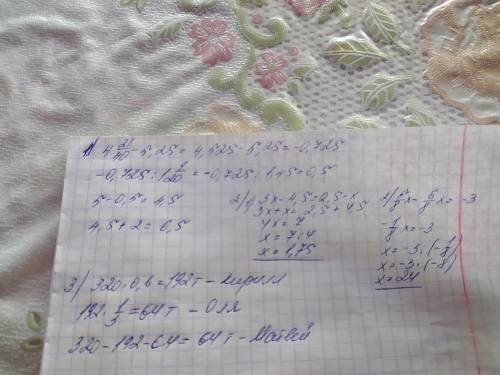 1) 4 21/40 - 5,25 = 4,525 - 5,25 = -0,725
-0,725 : 1 9/20 = -0,725 : 1,45 = 0,5
5 - 0,5 = 4,5
4,5 + 2 = 6,5
2) 1) 3x - 4,5 = 2,5 - x
3x + x = 2,5 + 4,5
4x = 7
x = 7 : 4
x = 1,75
x - 6/8 x = -3
-1/8 x = -3
x = -3 : (-1/8)
x = -3 · (-8)
x = 24
3) 320 · 0,6 = 192 т - Кирилл
192 · 1/3 = 64 т - Оля
320 - 192 - 64 = 64 т - Матвей